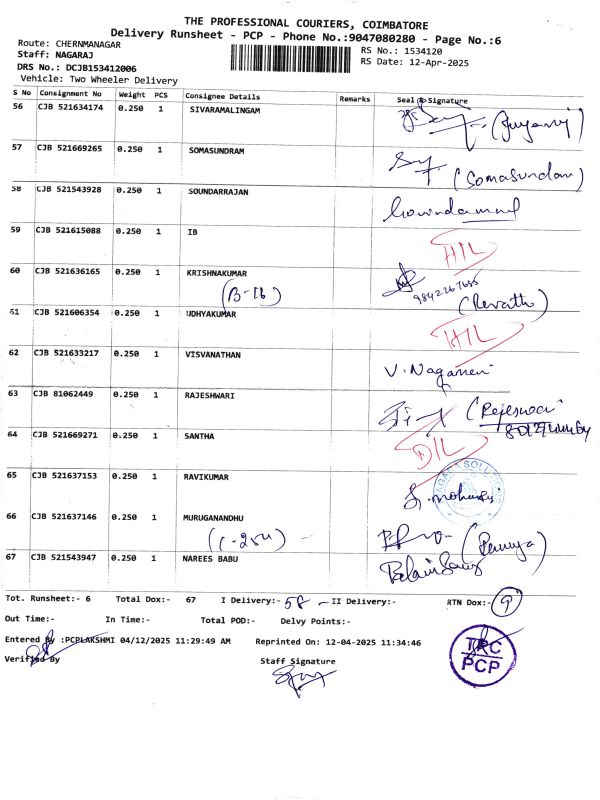 THE PROFESSIONAL COURIERS, COIMBATORE
Delivery Runsheet - PCP - Phone No.:9047080280 - Page No.:6
Route: CHERNMANAGAR
RS No.: 1534120
Staff: NAGARAJ
RS Date: 12-Apr-2025
DRS No.: DCJB153412006
Vehicle: Two Wheeler Delivery
S No Consignment No Weight PCS Consignee Details Remarks Seal & Signature
56 CJB 521634174 0.250 1 SIVARAMALINGAM
57 CJB 521669265 0.250 1 SOMASUNDRAM
(Somasundam)
58 CJB 521543928 0.250 1 SOUNDARRAJAN
59 CJB 521615088 0.250 1 IB
HIL
60 CJB 521636165 0.250 1 KRISHNAKUMAR
(B-Ib) (Revathi)
61 CJB 521606354 0.250 1 UDHYAKUMAR
HIL
62 CJB 521633217 0.250 1 VISVANATHAN
63 CJB 81062449 0.250 1 RAJESHWARI
64 CJB 521669271 0.250 1 SANTHA
DIL
65 CJB 521637153 0.250 1 RAVIKUMAR
66 CJB 521637146 0.250 1 MURUGANANDHU
(C-254)
67 CJB 521543947 0.250 1 NAREES BABU
Tot. Runsheet:- 6 Total Dox:- 67 I Delivery:- 58 - II Delivery:- RTN Dox:- 9
Out Time:- In Time:- Total POD:- Delvy Points:-
Entered By :PCPLAKSHMI 04/12/2025 11:29:49 AM Reprinted On: 12-04-2025 11:34:46
Verified By Staff Signature
PCP